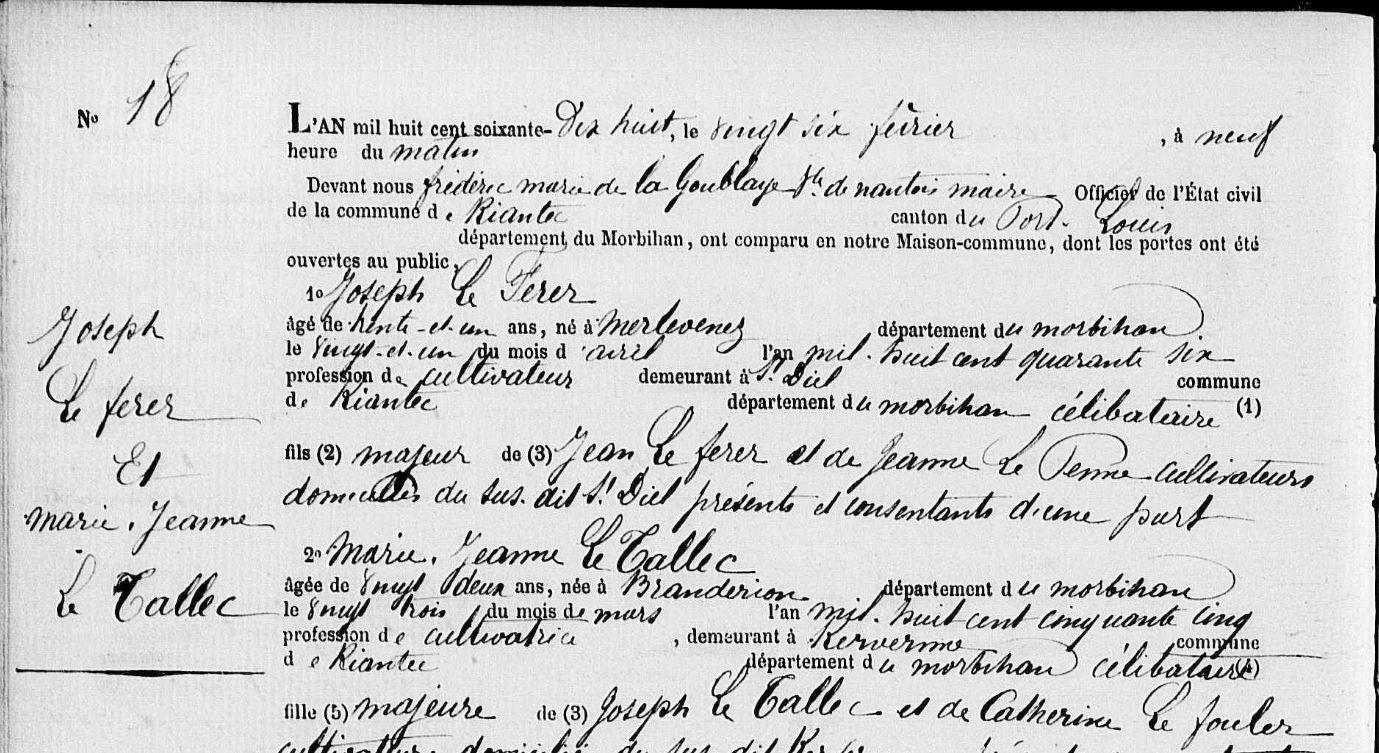 No 18
L'AN mil huit cent soixante- Dix huit, le vingt six février, à neuf
heure du matin
Devant nous frédéric marie de la Goublaye Vte de nantois maire Officier de l'État civil
de la commune de Riantec canton du Port-Louis
département du Morbihan, ont comparu en notre Maison-commune, dont les portes ont été
ouvertes au public,
1o Joseph Le Ferer
âgé de trente-et-un ans, né à Merlevenez département du morbihan
le vingt-et-un du mois d'avril l'an mil-huit cent quarante six
profession de cultivateur demeurant à St Diel commune
de Riantec département du morbihan célibataire (1)
fils (2) majeur de (3) Jean Le ferer et de Jeanne Le cultivateurs
domiciliés du sus-dit St Diel présents et consentants d'une part
2o Marie-Jeanne Le Tallec
âgée de vingt deux ans, née à Branderion département du morbihan
le vingt trois du mois de mars l'an mil-huit cent cinquante cinq
profession de cultivatrice, demeurant à commune
de Riantec département du morbihan célibataire (4)
fille (5) majeure de (3) Joseph Le Tallec et de Catherine Le fouler
du sus dit
Joseph
Le ferer
Et
marie-Jeanne
Le Tallec